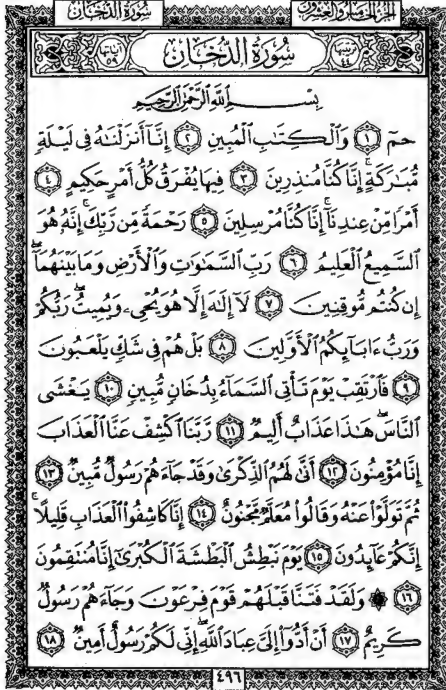 سُورَةُ الدُّخَانِ الجُزْءُ الخَامِسُ وَالعِشْرُونَ
آيَاتُهَا ٥٩ سُورَةُ الدُّخَانِ تَرْتِيبُهَا ٤٤
بِسْمِ اللَّهِ الرَّحْمَٰنِ الرَّحِيمِ
حمٓ ١ وَٱلْكِتَٰبِ ٱلْمُبِينِ ٢ إِنَّآ أَنزَلْنَٰهُ فِى لَيْلَةٍ
مُّبَٰرَكَةٍ ۚ إِنَّا كُنَّا مُنذِرِينَ ٣ فِيهَا يُفْرَقُ كُلُّ أَمْرٍ حَكِيمٍ ٤
أَمْرًا مِّنْ عِندِنَآ ۚ إِنَّا كُنَّا مُرْسِلِينَ ٥ رَحْمَةً مِّن رَّبِّكَ ۚ إِنَّهُۥ هُوَ
ٱلسَّمِيعُ ٱلْعَلِيمُ ٦ رَبِّ ٱلسَّمَٰوَٰتِ وَٱلْأَرْضِ وَمَا بَيْنَهُمَآ ۖ
إِن كُنتُم مُّوقِنِينَ ٧ لَآ إِلَٰهَ إِلَّا هُوَ يُحْىِۦ وَيُمِيتُ ۖ رَبُّكُمْ
وَرَبُّ ءَابَآئِكُمُ ٱلْأَوَّلِينَ ٨ بَلْ هُمْ فِى شَكٍّ يَلْعَبُونَ
٩ فَٱرْتَقِبْ يَوْمَ تَأْتِى ٱلسَّمَآءُ بِدُخَانٍ مُّبِينٍ ١٠ يَغْشَى
ٱلنَّاسَ ۖ هَٰذَا عَذَابٌ أَلِيمٌ ١١ رَّبَّنَا ٱكْشِفْ عَنَّا ٱلْعَذَابَ
إِنَّا مُؤْمِنُونَ ١٢ أَنَّىٰ لَهُمُ ٱلذِّكْرَىٰ وَقَدْ جَآءَهُمْ رَسُولٌ مُّبِينٌ ١٣
ثُمَّ تَوَلَّوْا۟ عَنْهُ وَقَالُوا۟ مُعَلَّمٌ مَّجْنُونٌ ١٤ إِنَّا كَاشِفُوا۟ ٱلْعَذَابِ قَلِيلًا ۚ
إِنَّكُمْ عَآئِدُونَ ١٥ يَوْمَ نَبْطِشُ ٱلْبَطْشَةَ ٱلْكُبْرَىٰٓ إِنَّا مُنتَقِمُونَ
١٦ ۞ وَلَقَدْ فَتَنَّا قَبْلَهُمْ قَوْمَ فِرْعَوْنَ وَجَآءَهُمْ رَسُولٌ
كَرِيمٌ ١٧ أَنْ أَدُّوٓا۟ إِلَىَّ عِبَادَ ٱللَّهِ ۖ إِنِّى لَكُمْ رَسُولٌ أَمِينٌ ١٨
٤٩٦